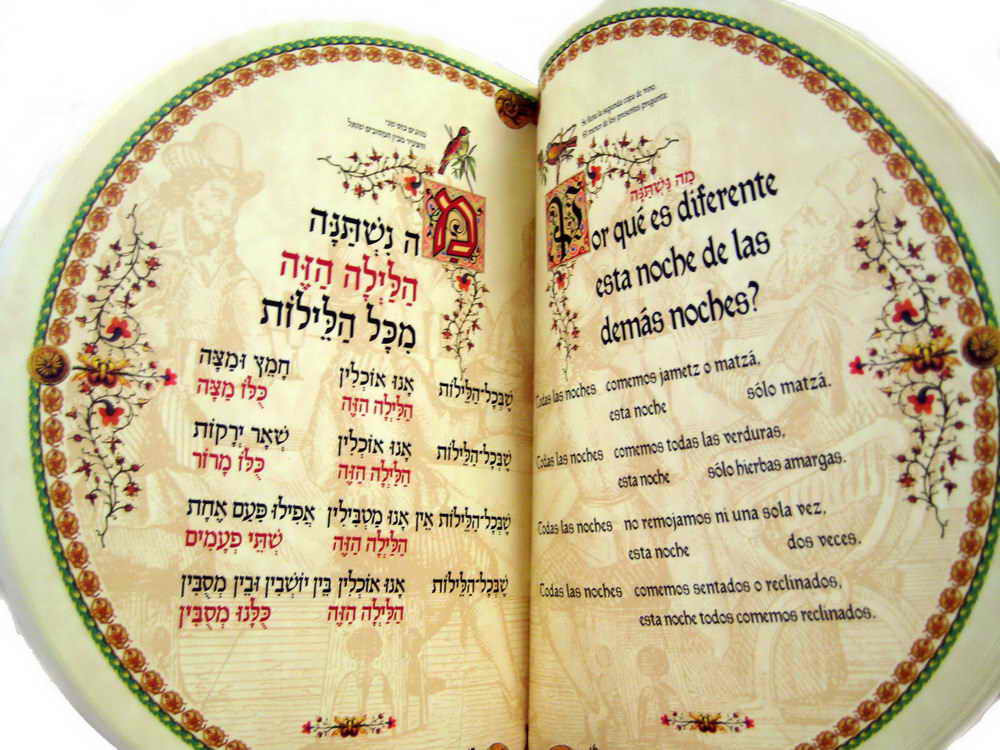 מוזגים כוס שני
והצעיר מבין המסובים שואל
מַה נִּשְׁתַּנָּה
הַלַּיְלָה הַזֶּה
מִכָּל הַלֵּילוֹת
שֶׁבְּכָל-הַלֵּילוֹת אָנוּ אוֹכְלִין חָמֵץ וּמַצָּה
הַלַּיְלָה הַזֶּה כֻּלּוֹ מַצָּה
שֶׁבְּכָל-הַלֵּילוֹת אָנוּ אוֹכְלִין שְׁאָר יְרָקוֹת
הַלַּיְלָה הַזֶּה כֻּלּוֹ מָרוֹר
שֶׁבְּכָל-הַלֵּילוֹת אֵין אָנוּ מַטְבִּילִין אֲפִילוּ פַּעַם אֶחָת
הַלַּיְלָה הַזֶּה שְׁתֵּי פְעָמִים
שֶׁבְּכָל-הַלֵּילוֹת אָנוּ אוֹכְלִין בֵּין יוֹשְׁבִין וּבֵין מְסֻבִּין
הַלַּיְלָה הַזֶּה כֻּלָּנוּ מְסֻבִּין
Se llena la segunda copa de vino.
El menor de los presentes pregunta:
מַה נִּשְׁתַּנָּה
Por qué es diferente
esta noche de las
demás noches?
Todas las noches comemos jametz o matzá,
esta noche sólo matzá.
Todas las noches comemos todas las verduras,
esta noche sólo hierbas amargas.
Todas las noches no remojamos ni una sola vez,
esta noche dos veces.
Todas las noches comemos sentados o reclinados,
esta noche todos comemos reclinados.